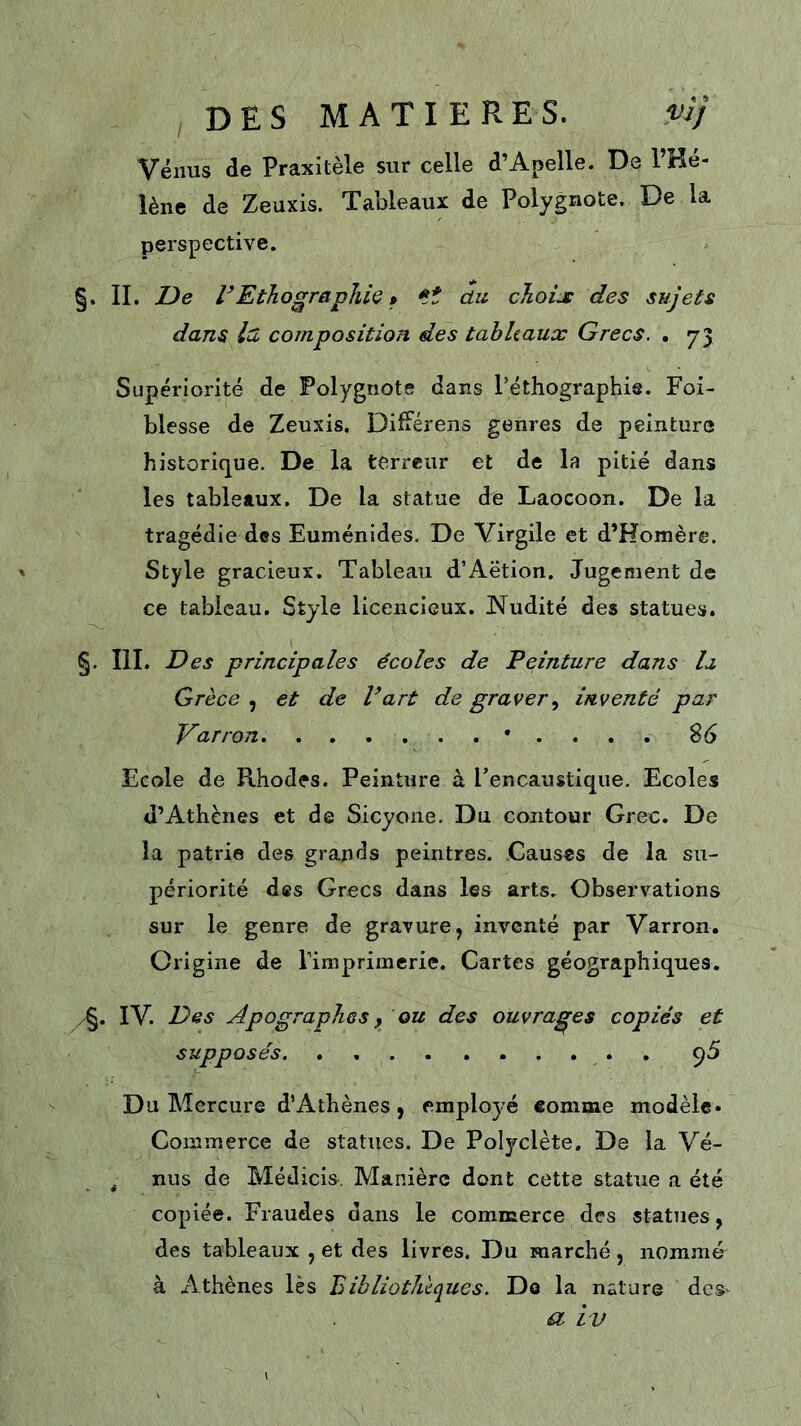 DES MATIERES. vij
Vénus de Praxitèle sur celle d'Apelle. De l'Hé-
lène de Zeuxis. Tableaux de Polygnote. De la
perspective.
§. II. De l'Ethographie, et du choix des sujets
dans la composition des tableaux Grecs. . 73
Supériorité de Polygnote dans l'éthographie. Foi-
blesse de Zeuxis. Différens genres de peinture
historique. De la terreur et de la pitié dans
les tableaux. De la statue de Laocoon. De la
tragédie des Euménides. De Virgile et d'Homère.
Style gracieux. Tableau d'Aëtion. Jugement de
ce tableau. Style licencieux. Nudité des statues.
§. III. Des principales écoles de Peinture dans la
Grèce, et de l'art de graver, inventé par
Varron. . . . . . . . . . . . . 86
Ecole de Rhodes. Peinture à l'encaustique. Ecoles
d'Athènes et de Sicyone. Du contour Grec. De
la patrie des grands peintres. Causes de la su-
périorité des Grecs dans les arts. Observations
sur le genre de gravure, inventé par Varron.
Origine de l'imprimerie. Cartes géographiques.
§. IV. Des Apographes, ou des ouvrages copiés et
supposés. . . . . . . . . . . . 95
Du Mercure d'Athènes, employé comme modèle.
Commerce de statues. De Polyclète. De la Vé-
nus de Médicis. Manière dont cette statue a été
copiée. Fraudes dans le commerce des statues,
des tableaux, et des livres. Du marché, nommé
à Athènes les Bibliothèques. De la nature des
a iv